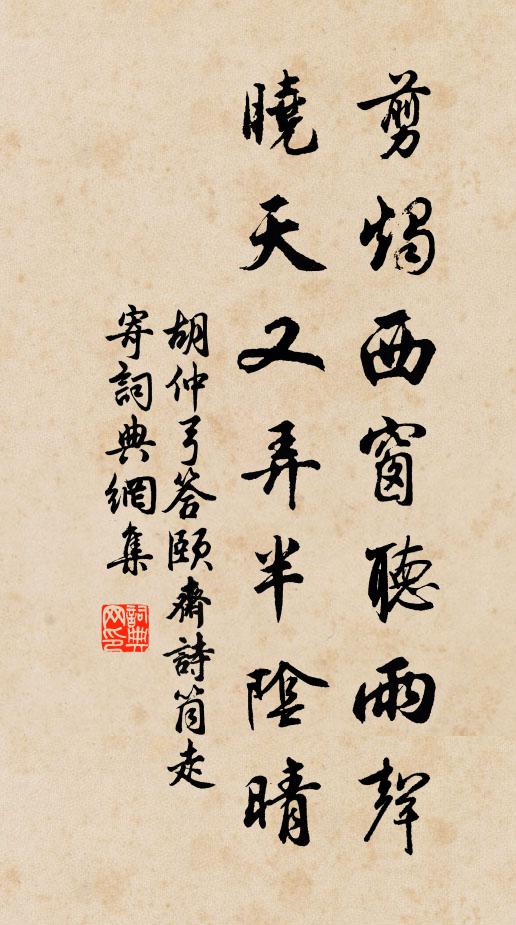 剪燭西窗聽雨聲
曉天又弄半陰晴
胡仲弓答頤齋詩筒走
寄詞典網集
詞典
网印